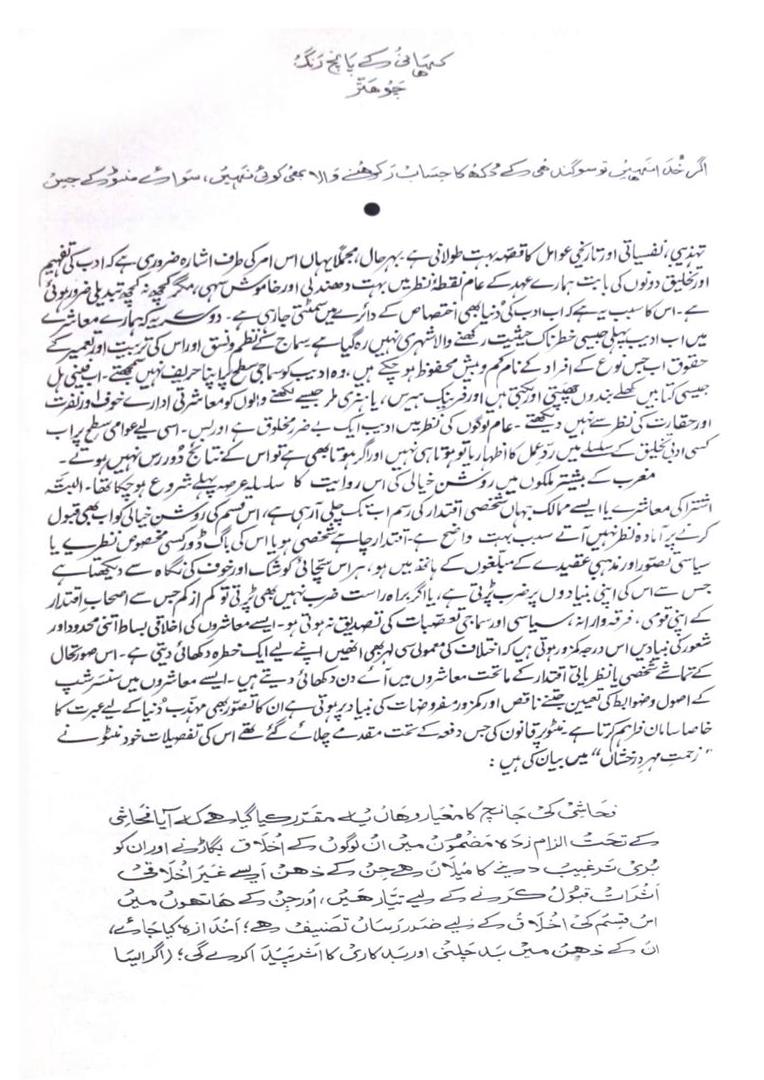 کہانی کے پانچ رنگ
اگر خدا نہیں تو سوگندھی کے دکھ کا حساب رکھنے والا بھی کوئی نہیں، سوائے منٹو کے جس
●
تہذیبی، نفسیاتی اور تاریخی عوامل کا قصہ بہت طولانی ہے۔ بہرحال، مجملاً یہاں اس امر کی طرف اشارہ ضروری ہے کہ ادب کی تفہیم
اور تخلیق دونوں کی بابت ہمارے عہد کے عام نقطۂ نظر میں بہت دھندلی اور خاموش سہی، مگر کچھ نہ کچھ تبدیلی ضرور ہوئی
ہے۔ اس کا سبب یہ ہے کہ اب ادب کی دنیا بھی اختصاص کے دائرے میں سمٹتی جا رہی ہے۔ دوسرے یہ کہ ہمارے معاشرے
میں اب ادیب پہلی جیسی خطرناک حیثیت رکھنے والا شہری نہیں رہ گیا ہے سماج نے نظم و نسق اور اس کی تربیت اور تعمیر کے
حقوق اب جس نوع کے افراد کے نام کم و بیش محفوظ ہو چکے ہیں، وہ ادیب کو سماجی سطح پر اپنا حریف نہیں سمجھتے۔ اب فینی ہل
جیسی کتابیں کھلے بندوں چھپتی اور بکتی ہیں اور فرینک ہیرس، یا ہنری ملر جیسے لکھنے والوں کو معاشرتی ادارے خوف اور نفرت
اور حقارت کی نظر سے نہیں دیکھتے۔ عام لوگوں کی نظر میں ادیب ایک بے ضرر مخلوق ہے اور بس۔ اسی لیے عوامی سطح پر اب
کسی ادبی تخلیق کے سلسلے میں ردِ عمل کا اظہار یا تو ہوتا ہی نہیں اور اگر ہوتا بھی ہے تو اس کے نتائج دور رس نہیں ہوتے۔
مغرب کے بیشتر ملکوں میں روشن خیالی کی اس روایت کا سلسلہ عرصہ پہلے شروع ہو چکا تھا۔ البتہ
اشتراکی معاشرے یا ایسے ممالک جہاں شخصی اقتدار کی رسم اب تک چلی آ رہی ہے، اس قسم کی روشن خیالی کو اب بھی قبول
کرنے پر آمادہ نظر نہیں آتے سبب بہت واضح ہے۔ اقتدار چاہے شخصی ہو یا اس کی باگ ڈور کسی مخصوص نظریے یا
سیاسی تصور اور مذہبی عقیدے کے مبلغوں کے ہاتھ میں ہو، ہر اس سچائی کو شک اور خوف کی نگاہ سے دیکھتا ہے
جس سے اس کی اپنی بنیادوں پر ضرب پڑتی ہے، یا اگر براہ راست ضرب نہیں بھی پڑتی تو کم از کم جس سے اصحاب اقتدار
کے اپنی قومی، فرقہ وارانہ، سیاسی اور سماجی تعصبات کی تصدیق نہ ہوتی ہو۔ ایسے معاشروں کی اخلاقی بساط اتنی محدود اور
شعور کی بنیادیں اس درجہ کمزور ہوتی ہیں کہ اختلاف کی معمولی سی لہر بھی انھیں اپنے لیے ایک خطرہ دکھائی دیتی ہے۔ اس صورتحال
کے تماشے شخصی یا نظریاتی اقتدار کے ماتحت معاشروں میں آئے دن دکھائی دیتے ہیں۔ ایسے معاشروں میں سنسر شپ
کے اصول و ضوابط کی تعیین جتنے ناقص اور کمزور مفروضات کی بنیاد پر ہوتی ہے ان کا تصور بھی مہذب دنیا کے لیے عبرت کا
خاصا سامان فراہم کرتا ہے۔ منٹو پر قانون کی جس دفعہ کے تحت مقدمے چلائے گئے تھے اس کی تفصیلات خود منٹو نے
”زحمتِ مہرِ درخشاں“ میں بیان کی ہیں:
فحاشی کی جانچ کا معیار وہاں یہ مقرر کیا گیا ہے کہ آیا فحاشی
کے تحت الزام زدہ مضمون میں ان لوگوں کے اخلاق بگاڑنے اور ان کو
بری ترغیب دینے کا میلان ہے جن کے ذہن ایسے غیر اخلاقی
اثرات قبول کرنے کے لیے تیار ہیں، اور جن کے ہاتھوں میں
اس قسم کی اخلاق کے لیے ضرر رساں تصنیف ہے؛ اندازہ کیا جائے،
ان کے ذہن میں بد چلنی اور بدکاری کا اثر پیدا کرے گی؛ (اگر ایسا